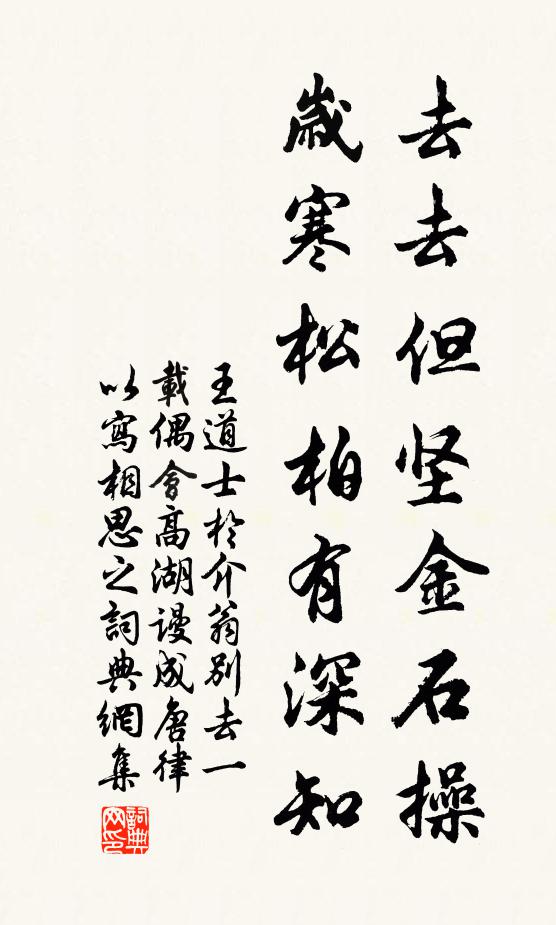 去去但坚金石操
歲寒松柏有深知
王道士於介翁別去一
載偶會高湖謾成唐律
以寫相思之詞典網集
詞典
网印